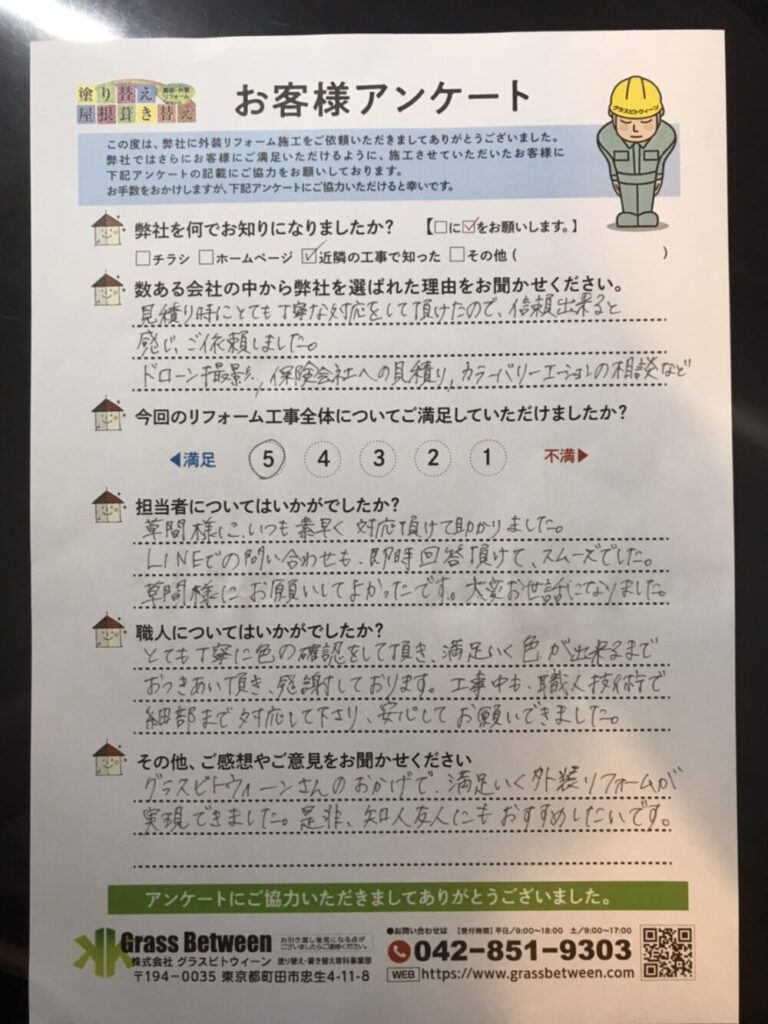 塗り替え
屋根・外壁
リフォーム
屋根葺き替え
お客様アンケート
グラスビトウィーン
この度は、弊社に外装リフォーム施工をご依頼いただきましてありがとうございました。
弊社ではさらにお客様にご満足いただけるように、施工させていただいたお客様に
下記アンケートの記載にご協力をお願いしております。
お手数をおかけしますが、下記アンケートにご協力いただけると幸いです。
弊社を何でお知りになりましたか? 【□に☑をお願いします。】
□チラシ □ホームページ ☑近隣の工事で知った □その他( )
数ある会社の中から弊社を選ばれた理由をお聞かせください。
見積り時にとても丁寧な対応をして頂けたので、信頼出来ると
感じ、ご依頼しました。
ドローン撮影、保険会社への見積り、カラーバリーエーションの相談など
今回のリフォーム工事全体についてご満足していただけましたか?
◀満足 5 4 3 2 1 不満▶
担当者についてはいかがでしたか?
草間様に、いつも素早く対応頂けて助かりました。
LINEでの問い合わせも、即時回答頂けて、スムーズでした。
草間様にお願いしてよかったです。大変お世話になりました。
職人についてはいかがでしたか?
とても丁寧に色の確認をして頂き、満足いく色が出来るまで
おつきあい頂き、感謝しております。工事中も、職人技術で
細部まで対応して下さり、安心してお願いできました。
その他、ご感想やご意見をお聞かせください
グラスビトウィーンさんのおかげで、満足いく外装リフォームが
実現できました。是非、知人友人にもおすすめしたいです。
アンケートにご協力いただきましてありがとうございました。
Grass Between
お引き渡し後気になる点が
ございましたらご連絡ください。
株式会社 グラスビトウィーン 塗り替え・葺き替え専科事業部
〒194-0035 東京都町田市忠生4-11-8
●お問い合わせは [受付時間]平日/9:00〜18:00 土/9:00〜17:00
042-851-9303
WEB https://www.grassbetween.com